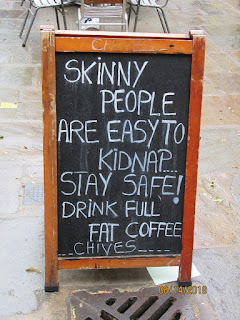 SKINNY
PEOPLE
ARE EASY TO
KIDNAP....
STAY SAFE!
DRINK FULL
FAT COFFEE
CHIVES